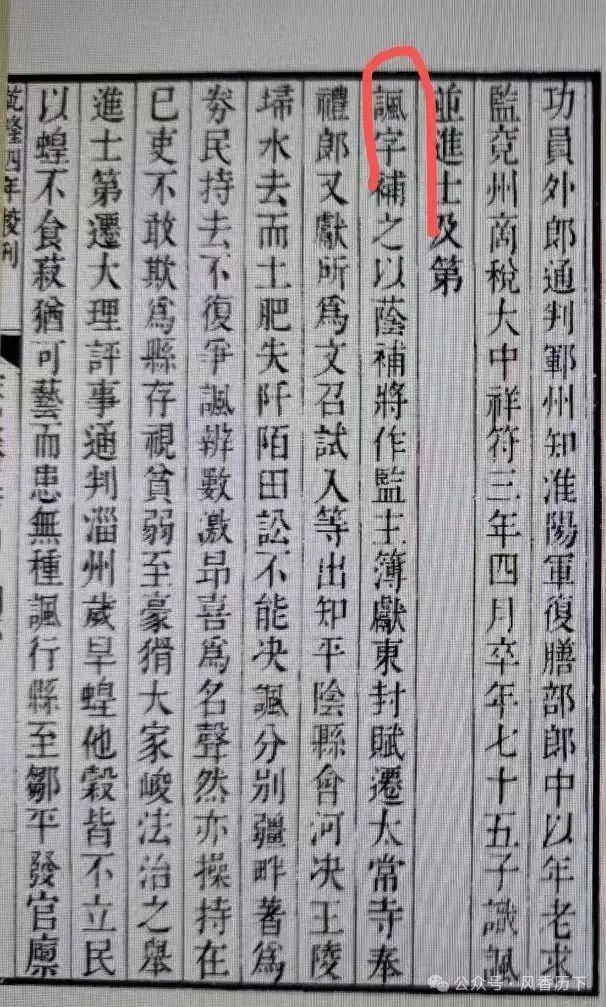 功員外郎通判鄆州知淮陽軍復膳部郎中以年老求
監兗州商稅大中祥符三年四月卒年七十五子識諷
並進士及第
諷字補之以蔭補將作監主簿獻東封賦遷太常寺奉
禮郎又獻所爲文召試入等出知平陰縣會河决王陵
埽水去而土肥失阡陌田訟不能决諷分别疆畔著爲
券民持去不復爭諷辨數激昂喜爲名聲然亦操持在
已吏不敢欺爲縣存視貧弱至豪猾大家峻法治之舉
進士第遷大理評事通判淄州歲旱蝗他穀皆不立民
以蝗不食菽猶可藝而患無種諷行縣至鄒平發官廪
乾隆四年校刊
公众号·风香历下